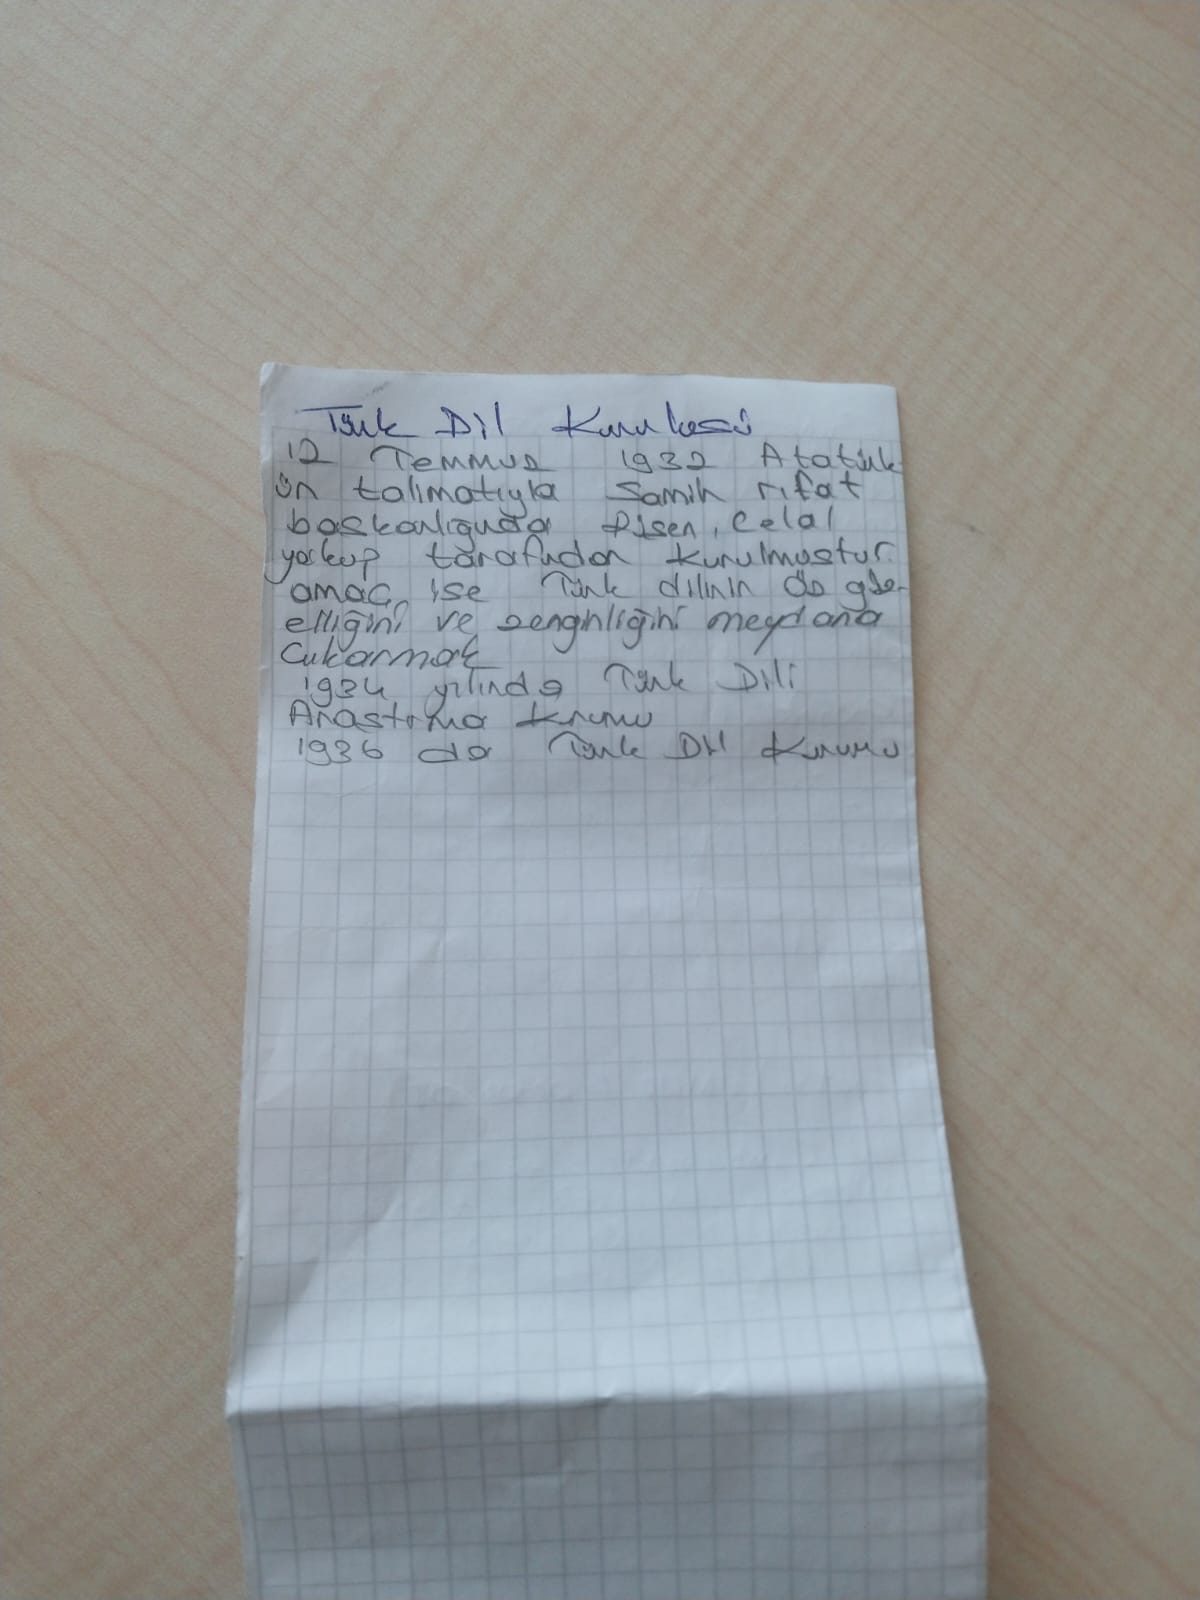 Türk Dil
12 Temmuz 1932 Atatürk
ün talimatıyla Samih rıfat
başkanlığında Ruşen, Celal
yakup tarafından kurulmuştur.
amaç ise Türk dilinin öz güz-
elliğini ve zenginliğini meydana
Çıkarmak
1934 yılında Türk Dili
Araştırma Kurumu
1936 da Türk Dil Kurumu